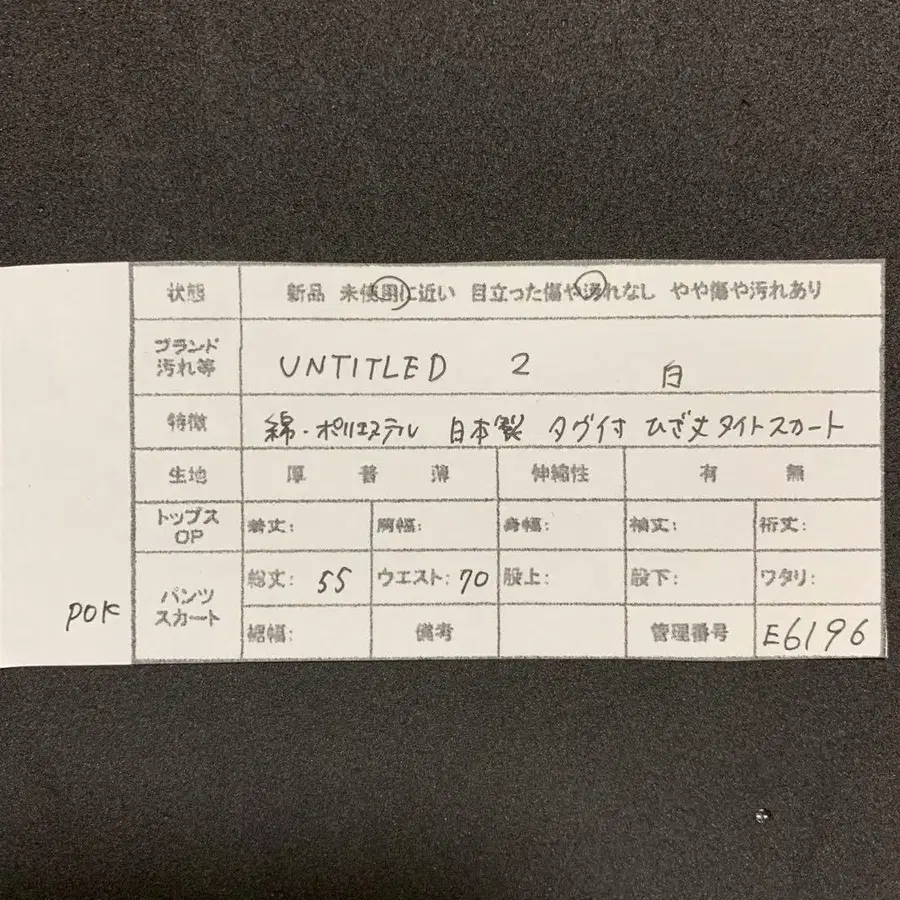 状態 新品 未使用に近い 目立った傷や汚れなし やや傷や汚れあり
ブランド
汚れ等 UNTITLED 2 白
特徴 綿・ポリエステル 日本製 タグ付 ひざ丈タイトスカート
生地 厚 普 薄 伸縮性 有 無
トップス
OP 着丈: 胸幅: 身幅: 袖丈: 裄丈:
パンツ
スカート 総丈: 55 ウエスト: 70 股上: 股下: ワタリ:
裾幅: 備考 管理番号 E6196
POK